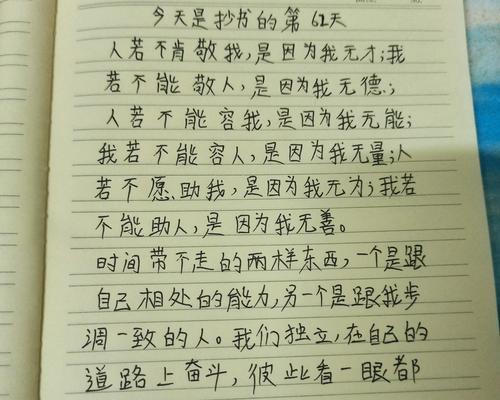 今天是抄书的第62天
人若不肯敬我,是因为我无才;我
若不能敬人,是因为我无德;
人若不能容我,是因为我无能;
我若不能容人,是因为我无量;人
若不愿助我,是因为我无为;我若
不能助人,是因为我无善。
时间带不走的两样东西,一个是跟
自己相处的能力,另一个是跟我步
调一致的人。我们独立,在自己的
道路上奋斗,彼此看一眼都